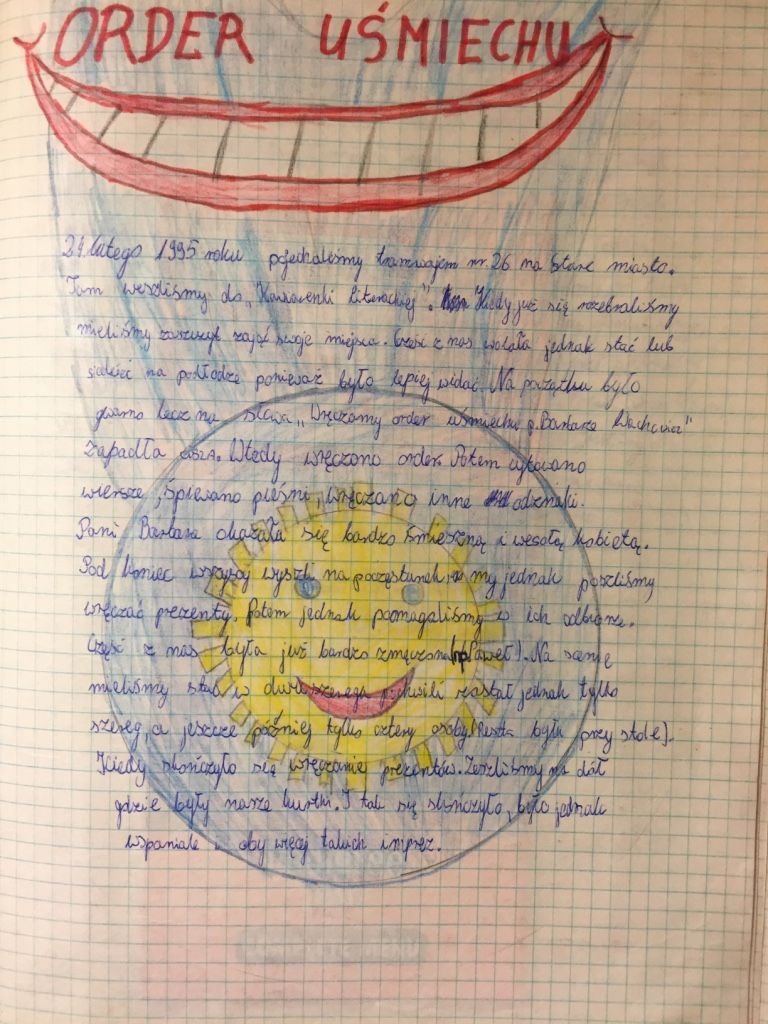 ORDER UŚMIECHU
24 lutego 1995 roku pojechaliśmy tramwajem nr. 26 na Stare miasto.
Tam weszliśmy do „Kawiarenki Literackiej". Kiedy już się rozebraliśmy
mieliśmy zaszczyt zająć swoje miejsca. Część z nas wolała jednak stać lub
siedzieć na podłodze ponieważ było lepiej widać. Na początku było
gwarno lecz na słowa „Wręczamy order uśmiechu p. Barbarze Wachowicz"
zapadła cisza. Wtedy wręczono order. Potem cytowano
wiersze, śpiewano pieśni, wręczano inne odznaki.
Pani Barbara okazała się bardzo śmieszną i wesołą kobietą.
Pod koniec wszyscy wyszli na poczęstunek, my jednak poszliśmy
wręczać prezenty. Potem jednak pomagaliśmy w ich odbiorze.
Część z nas była już bardzo zmęczona (np Paweł). Na scenie
mieliśmy stać w dwuszeregu po chwili został jednak tylko
szereg, a jeszcze później tylko cztery osoby (Reszta była przy stole).
Kiedy skończyło się wręczanie prezentów. Zeszliśmy na dół
gdzie były nasze kurtki. I tak się skończyło, było jednak
wspaniale i oby więcej takich imprez.